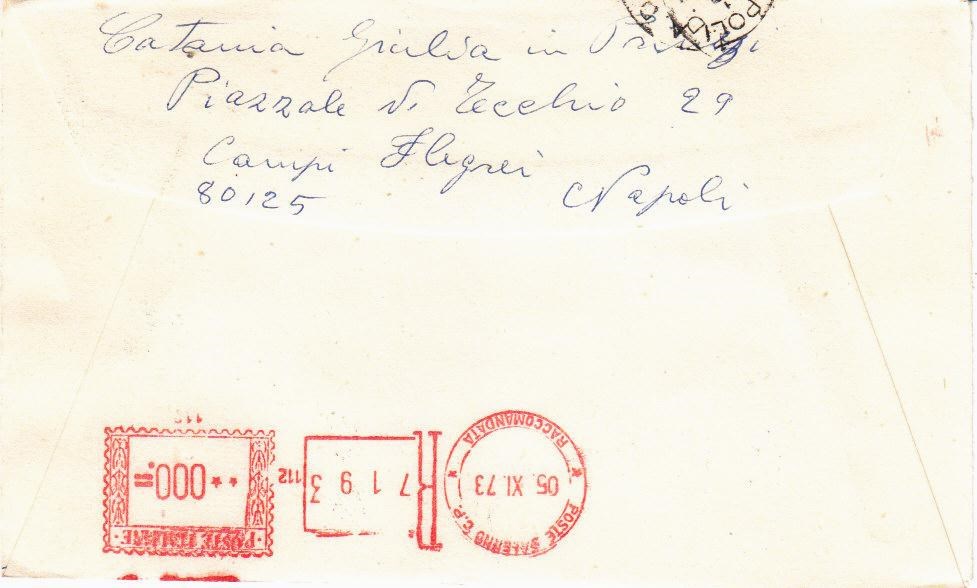 Catania Giulia in
Piazzale V. Tecchio 29
Campi Flegrei
80125 Napoli
POLLA
112
**000.=
POSTE ITALIANE
112
R 7193
RACCOMANDATA
05. XI. 73
POSTE SALERNO C.P.